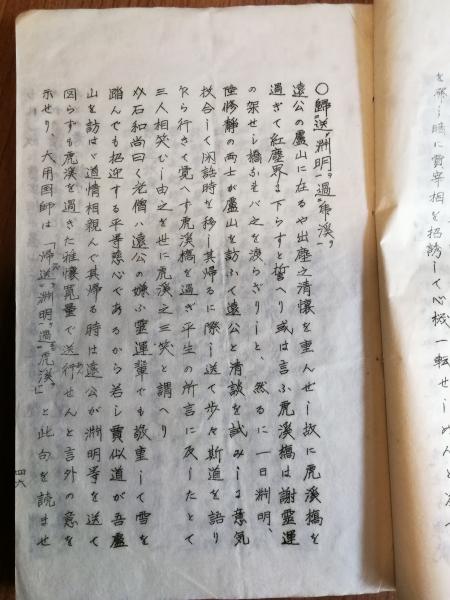 を帰し時に賈宰相を招誘して心機一転せしめんと
〇歸送ニ淵明ヲ一過ニ虎溪ヲ一
遠公の廬山に在るや出塵之清懐を重んぜし故に虎溪橋を
過ぎて紅塵界に下らずと誓へり或は言ふ虎溪橋は謝靈運
の架せし橋なれバ之を渡らざりしと、然るに一日淵明、
陸修靜の両士が廬山を訪ふて遠公と清談を試みしに意気
投合して閑話時を移し其帰るに際し送て歩々斯道を語り
行きて覚へず虎溪橋を過ぎ平生の所言に反したとて
三人相笑むし由之を世に虎溪之三笑と謂へり
石和尚曰く老僧ハ遠公の嫌ふ靈運輩でも敬重して雪を
踏んでも招迎する平等慈心であるから若し賈似道が吾廬
山を訪はゞ道情相親んで其帰る時は遠公が淵明等を送て
図らずも虎溪を過ぎた雅懐寛量で送行せんと言外の意を
示せり、大用国師は「帰送淵明過虎溪」と此句を読ませ
四六